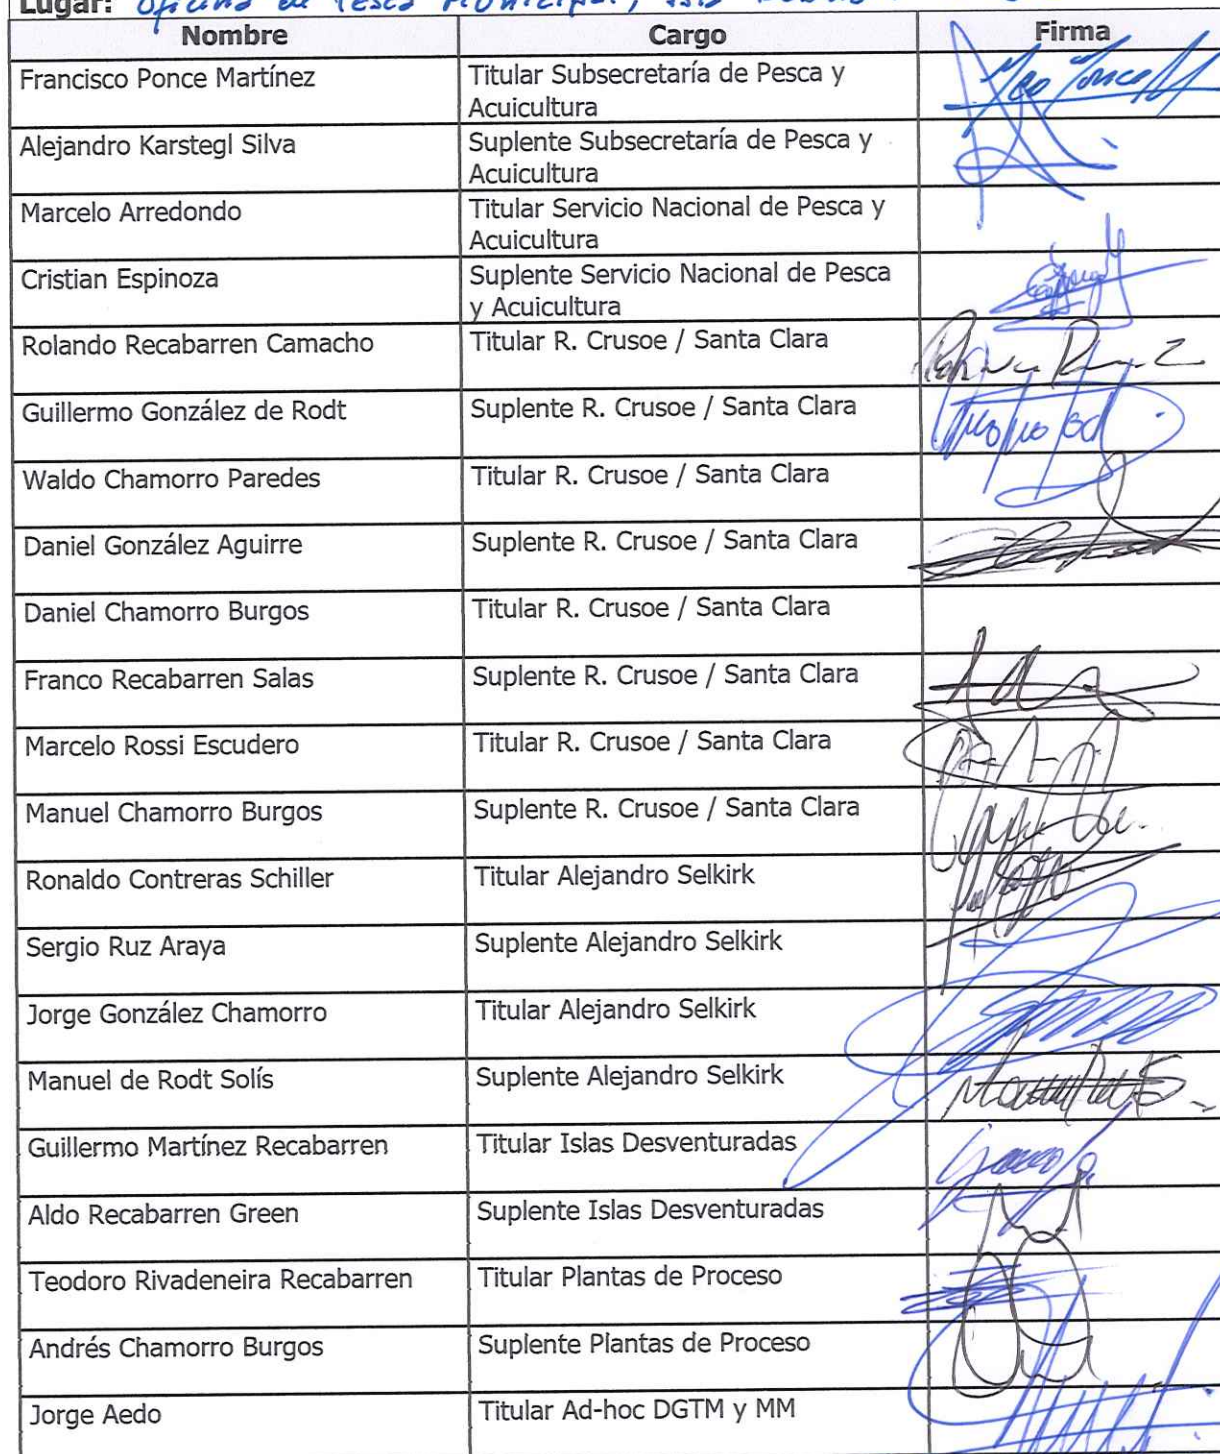 Lugar: Oficina de Pesca Municipal, Isla
Nombre Cargo Firma
Francisco Ponce Martínez Titular Subsecretaría de Pesca y
Acuicultura
Alejandro Karstegl Silva Suplente Subsecretaría de Pesca y
Acuicultura
Marcelo Arredondo Titular Servicio Nacional de Pesca y
Acuicultura
Cristian Espinoza Suplente Servicio Nacional de Pesca
y Acuicultura
Rolando Recabarren Camacho Titular R. Crusoe / Santa Clara
Guillermo González de Rodt Suplente R. Crusoe / Santa Clara
Waldo Chamorro Paredes Titular R. Crusoe / Santa Clara
Daniel González Aguirre Suplente R. Crusoe / Santa Clara
Daniel Chamorro Burgos Titular R. Crusoe / Santa Clara
Franco Recabarren Salas Suplente R. Crusoe / Santa Clara
Marcelo Rossi Escudero Titular R. Crusoe / Santa Clara
Manuel Chamorro Burgos Suplente R. Crusoe / Santa Clara
Ronaldo Contreras Schiller Titular Alejandro Selkirk
Sergio Ruz Araya Suplente Alejandro Selkirk
Jorge González Chamorro Titular Alejandro Selkirk
Manuel de Rodt Solís Suplente Alejandro Selkirk
Guillermo Martínez Recabarren Titular Islas Desventuradas
Aldo Recabarren Green Suplente Islas Desventuradas
Teodoro Rivadeneira Recabarren Titular Plantas de Proceso
Andrés Chamorro Burgos Suplente Plantas de Proceso
Jorge Aedo Titular Ad-hoc DGTM y MM